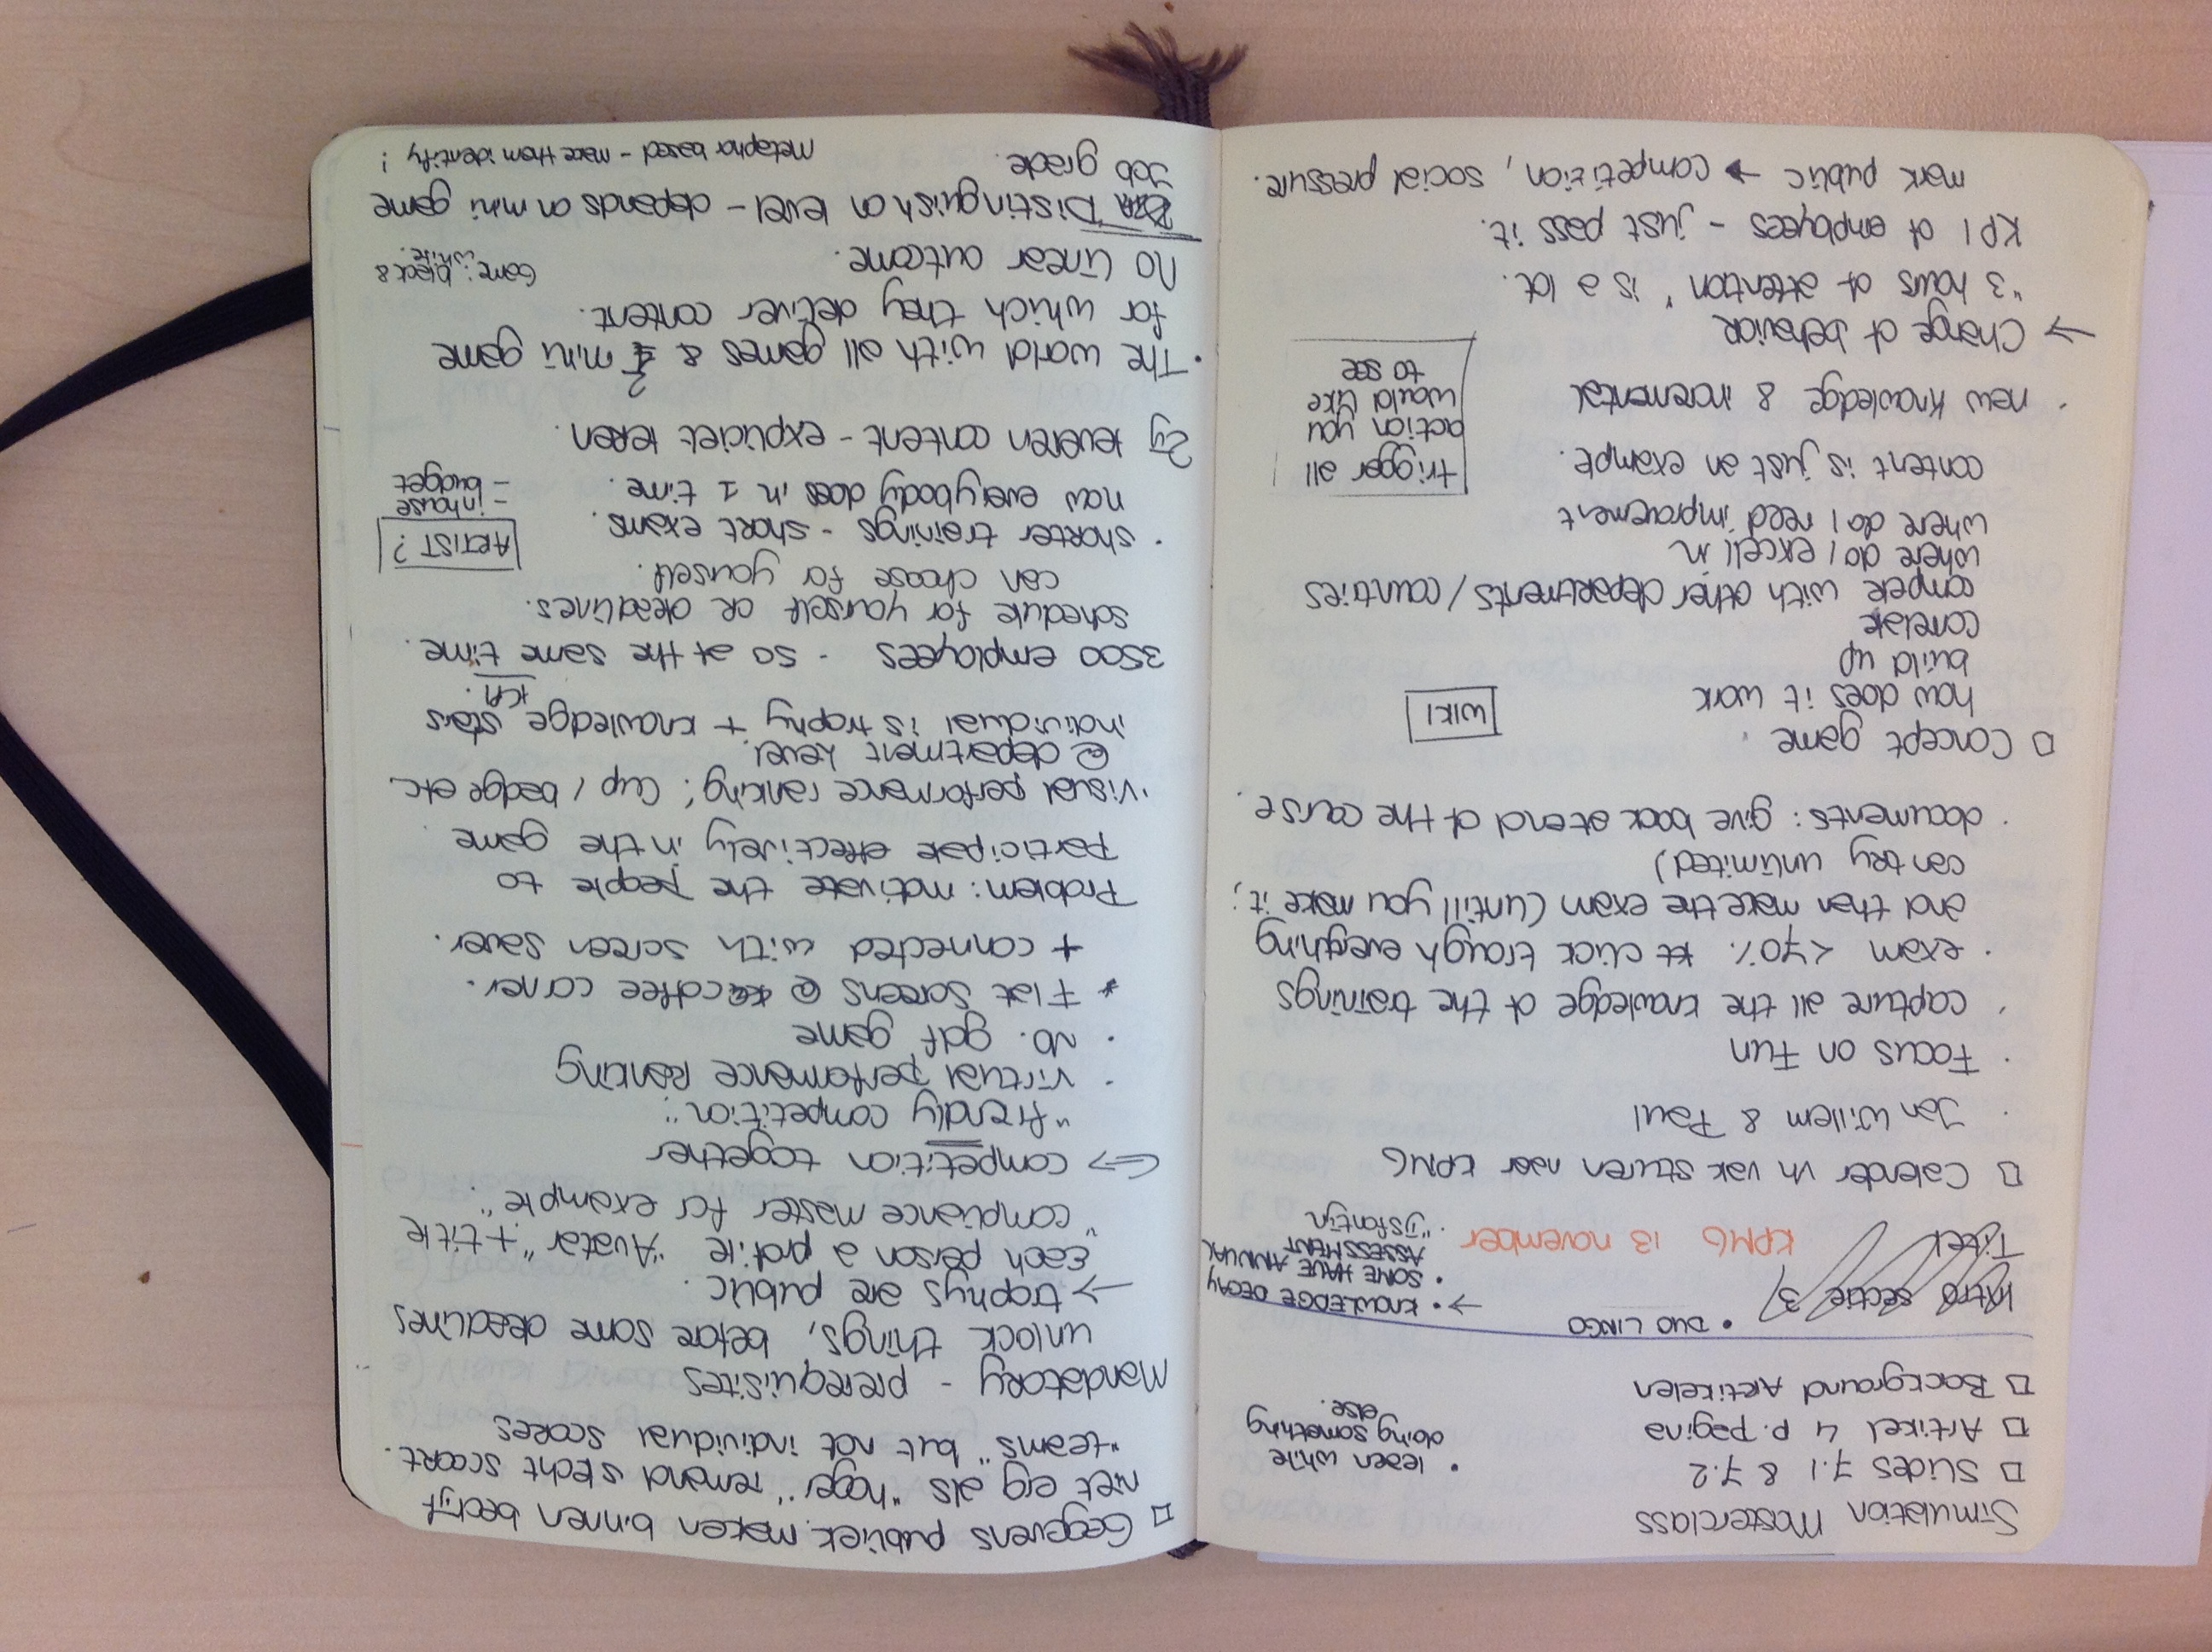 Simulation Masterclass
Slides 7.1 & 7.2
Artikel 4 p. pagina
Background Artikelen
• learn while
doing something
else.
Intro sectie 3
Titel
• DUO LINGO
→ • KNOWLEDGE DECAY
• SOME HAVE ANNUAL
ASSESSMENT
• "ijsfontijn
KPMG 13 november
Calender vh vak sturen naar KPMG
· Jan Willem & Paul
· Focus on Fun
· capture all the knowledge of the trainings
· exam <70% click trough everything
and than make the exam (untill you make it;
can try unlimited)
· documents: give back at end of the course.
Concept game.
how does it work
build up
correlate
compete with other departments / countries
where do I excell in
where do I need improvement
content is just an example.
WIKI
trigger all
action you
would like
to see
· new knowledge & incremental
→ Change of behavior
"3 hours of attention" is a lot.
KPI of employees - just pass it.
mark public → competition, social pressure.
Gegevens publiek maken binnen bedrijf
niet erg als "hoger" iemand slecht scoort.
"teams" but not individual scores
Mandatory - prerequisites
unlock things, before some deadlines
→ trophys are public.
Each person a profile "Avatar" + title
"compliance master for example".
⇒ competition together
"friendly competition".
· virtual performance ranking
· NO. golf game
* Flat screens @ coffee corner.
+ connected with screen saver.
Problem: motivate the people to
participate effectively in the game.
· visual performance ranking! Cup / badge etc.
@ department level.
individual is trophy + knowledge stars
KPI.
3500 employees - so at the same time.
schedule for yourself OR deadlines.
can choose for yourself.
· shorter trainings - short exams.
now everybody does in 1 time.
ARTIST?
- inhouse
- budget
Zij leveren content - expliciet leren.
· The world with all games & 2 mini game
for which they deliver content.
No linear outcome.
Game: black &
white.
Distinguish on level - depends on mini game
Job grade.
Metaphor based - make them identify!